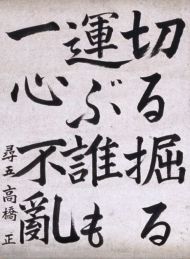 切る掘る
運ぶ誰も
一心不亂
尋五高橋正